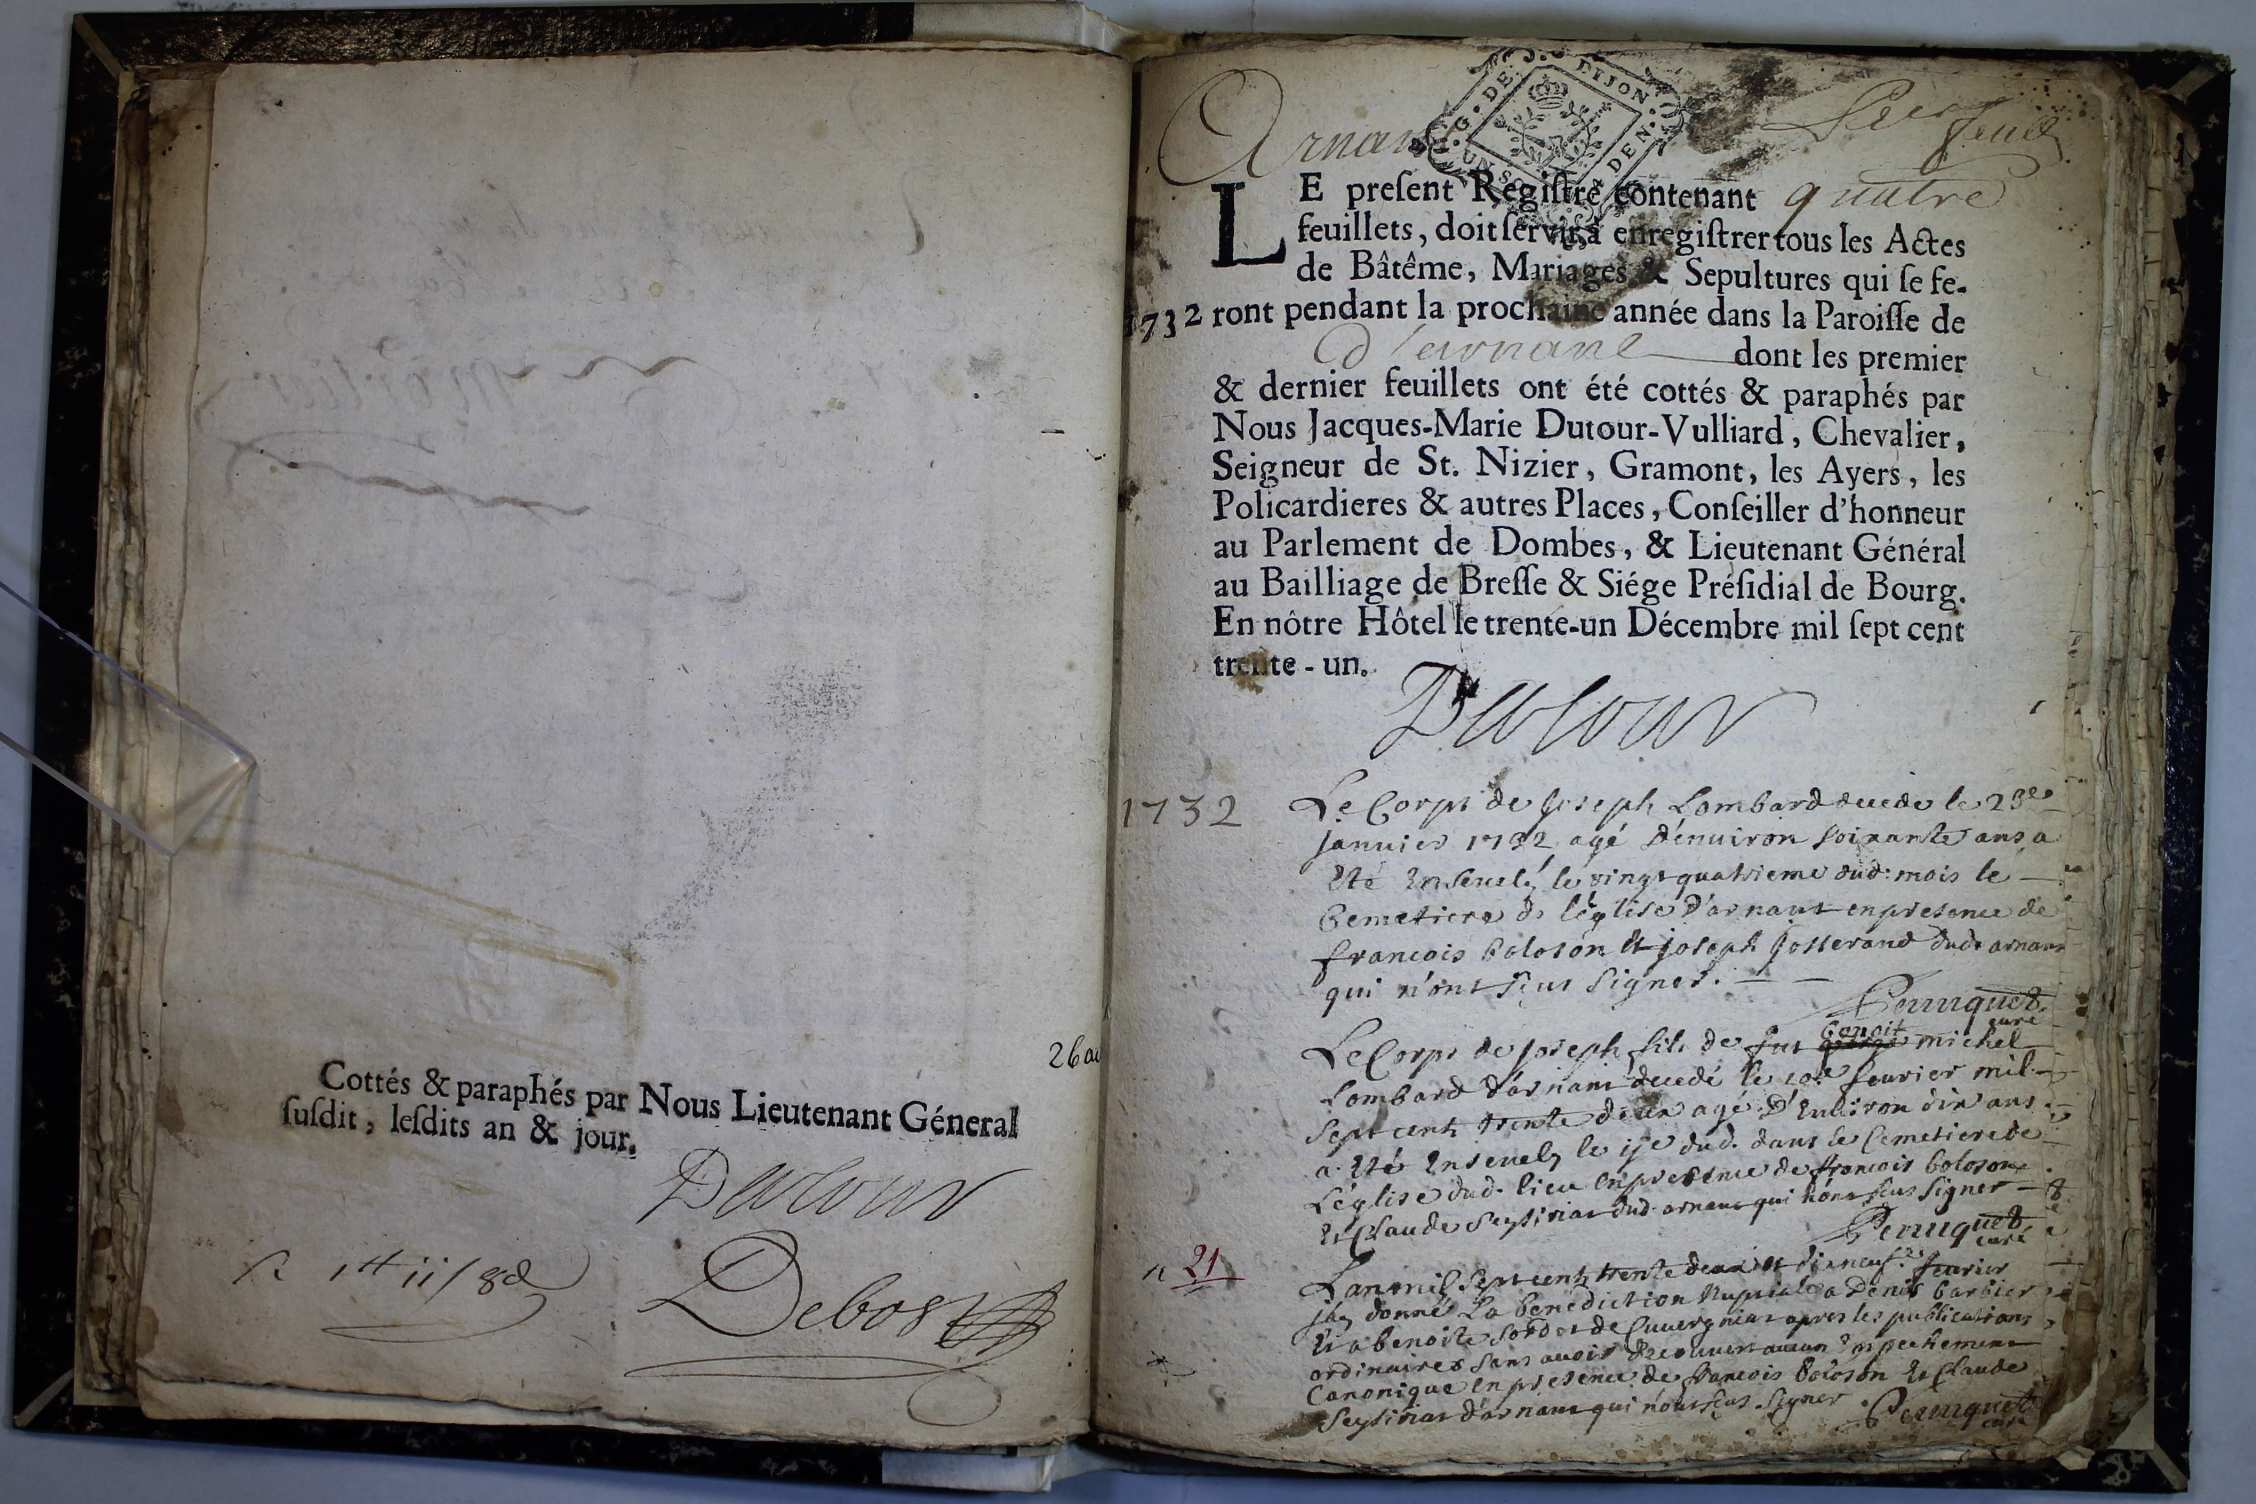 26
Cottés & paraphés par Nous Lieutenant Géneral
ſuſdit, leſdits an & jour.
Dutour
Debost
Arnan
G. DE DIJON
UN SO DEN.
LE preſent Regiſtre contenant quatre
feuillets, doit ſervir à enregiſtrer tous les Actes
de Bâtême, Mariages & Sepultures qui ſe fe-
1732 ront pendant la prochaine année dans la Paroiſſe de
dont les premier
& dernier feuillets ont été cottés & paraphés par
Nous Jacques-Marie Dutour-Vulliard, Chevalier,
Seigneur de St. Nizier, Gramont, les Ayers, les
Policardieres & autres Places, Conſeiller d'honneur
au Parlement de Dombes, & Lieutenant Général
au Bailliage de Breſſe & Siége Préſidial de Bourg.
En nôtre Hôtel le trente-un Décembre mil ſept cent
trente-un.
Dutour
1732
Le Corps de Joseph Lombard decede le 23e
januier 1732 agé d'enuiron soixante ans a
Eté Enseuely le vingt quatrieme dud. mois le
Cemetiere de l'église d'arnant en presence de
francois boloson Et joseph josserand dud. arnant
qui n'ont sçus signer.
Perruquet
curé
Le Corps de Joseph fils de fut Benoit michel
Lombard d'arnant decedé le 10e feurier mil
sept cent trente deux agé d'Enuiron dix ans
a Eté Enseuely le 11e dud. dans le Cemetiere de
L'église dud. lieu en presence de francois boloson
Et Claude Seytiriat dud. arnant qui n'ont sçus signer
Perruquet
curé
n 21
L'an mil sept cent trente deux et dixneuf feurier
jay donné La benediction Nuptiale a Denis barbier
Et a benoite de Cuuergniat apres les publications
ordinaires sans auoir decouuert aucun Empechement
Canonique en presence de francois boloson Et Claude
Seytiriat d'arnant qui n'ont sçus signer
Perruquet
curé